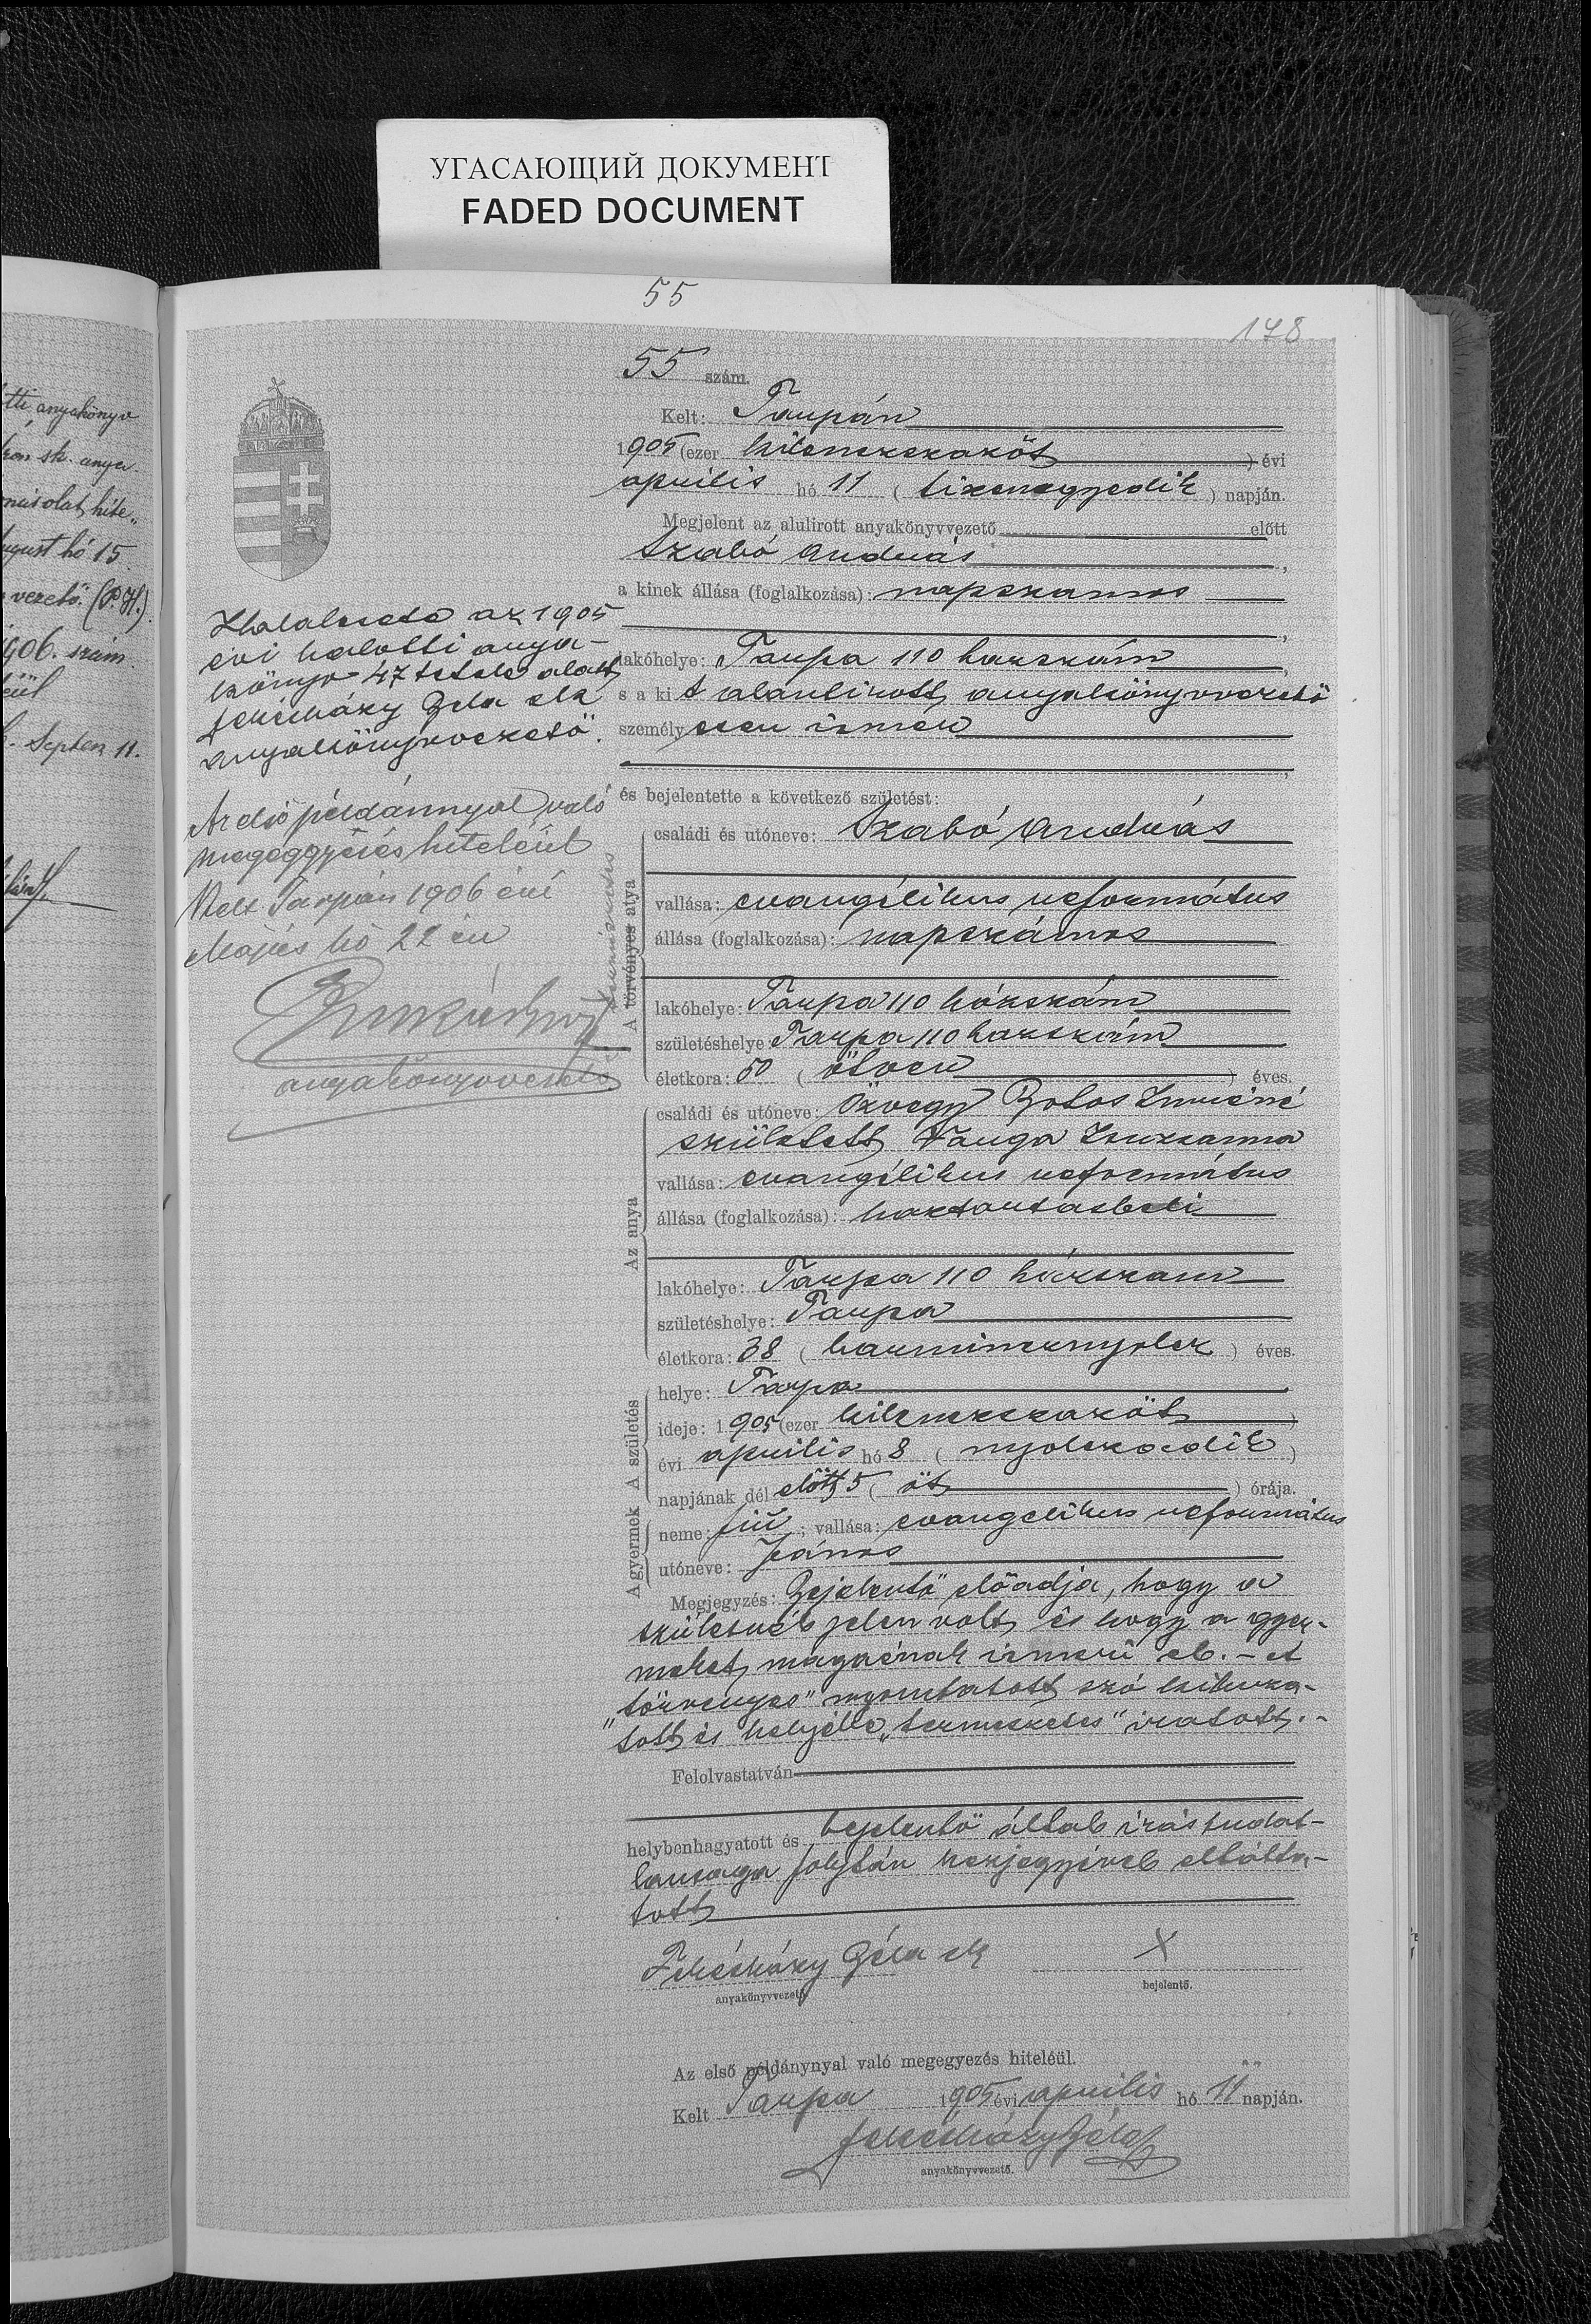 УГАСАЮЩИЙ ДОКУМЕНТ
FADED DOCUMENT
55
178
55 szám.
Kelt: Tarpán
1905 (ezer kilenczszazöt) évi
aprilis hó 11 (tizenegyedik) napján.
Megjelent az alulirott anyakönyvvezető előtt
Szabó András,
a kinek állása (foglalkozása): napszamos
,
lakóhelye: Tarpa 110 hazszám
s a kit alantirott anyakönyvvezető
személyesen ismer
,
és bejelentette a következő születést:
A törvényes atya
természetes
családi és utóneve: Szabó András
vallása: evangélikus református
állása (foglalkozása): napszámos
lakóhelye: Tarpa 110 házszám
születéshelye: Tarpa 110 hazszám
életkora: 50 (ötven) éves.
Az anya
családi és utóneve: özvegy Botos Imréné
született Varga Zsuzsanna
vallása: evangélikus református
állása (foglalkozása): haztartasbeli
lakóhelye: Tarpa 110 házszam
születéshelye: Tarpa
életkora: 38 (harmincznyolcz) éves.
A születés
helye: Tarpa
ideje: 1905 (ezer kilenczszazöt)
évi aprilis hó 8 (nyolczadik)
napjának dél előtt 5 (öt) órája.
A gyermek
neme: fiú; vallása: evangelikus református
utóneve: János
Megjegyzés: Bejelentő előadja, hogy a
szülesnél jelen volt és hogy a gyer-
meket magáénak ismeri el. – A
"törvenyes" nyomtatott szó kihuza-
tott és helyébe "termeszetes" iratott. -
Felolvastatván
helybenhagyatott és bejelentő által irástudat-
lansaga folytán kézjegyével ellátta-
tott
Feketeházy Béla sk
anyakönyvvezető
X
bejelentő.
Az első példánynyal való megegyezés hiteléül.
Kelt Tarpa 1905 évi aprilis hó 11 napján.
Feketeházy Béla
anyakönyvvezető.
Halalesete az 1905
évi halotti anya-
könyv 47 tetele alatt
Feketeházy Bela sk
anyakönyvvezető.
Az első példánnyal való
megegyezés hiteléül
Kelt Tarpán 1906 évi
Május hó 22 én
anyakönyvvezető
tti anyakönyv
sk. anya
másolat hite„
august hó 15.
vezető. (P. H.).
1906. szám.
Septem 11.